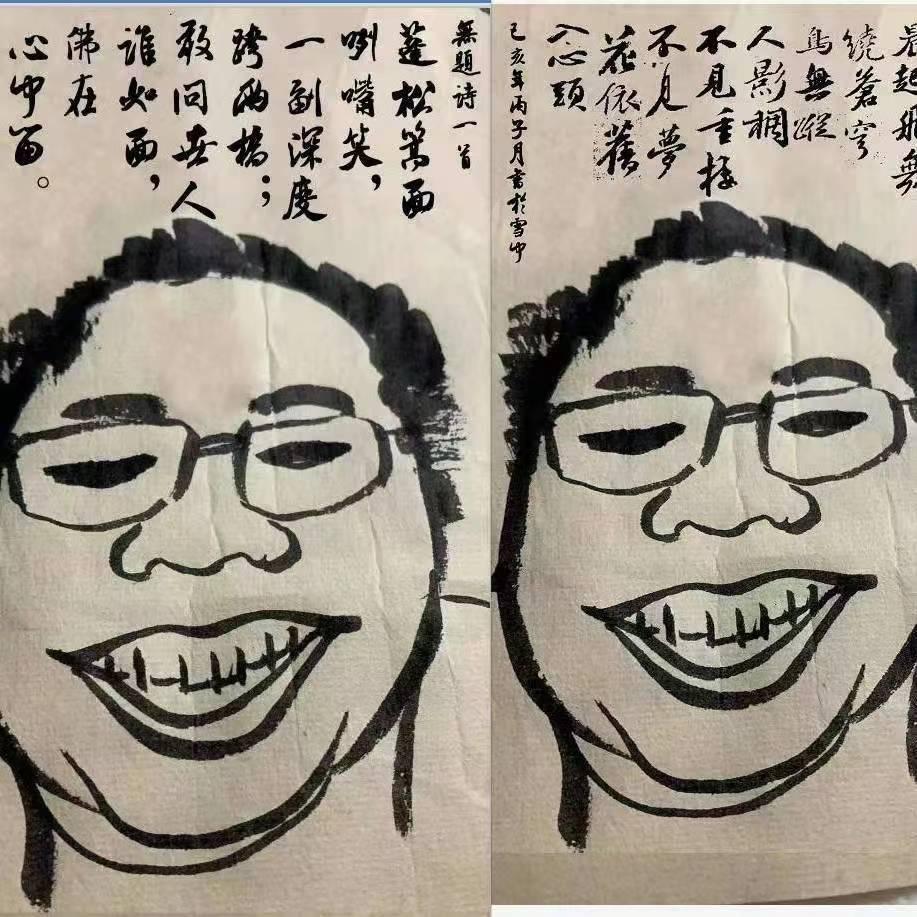 無題詩一首
蓬松 面
咧嘴笑，
一副深度
跨兩 ；
敢問世人
誰如面，
佛在
心中留。
晨起
繞蒼穹
鳥無蹤
人影稠
不見重
不見夢
花依舊
入心頭
己亥年丙子月書於雪中